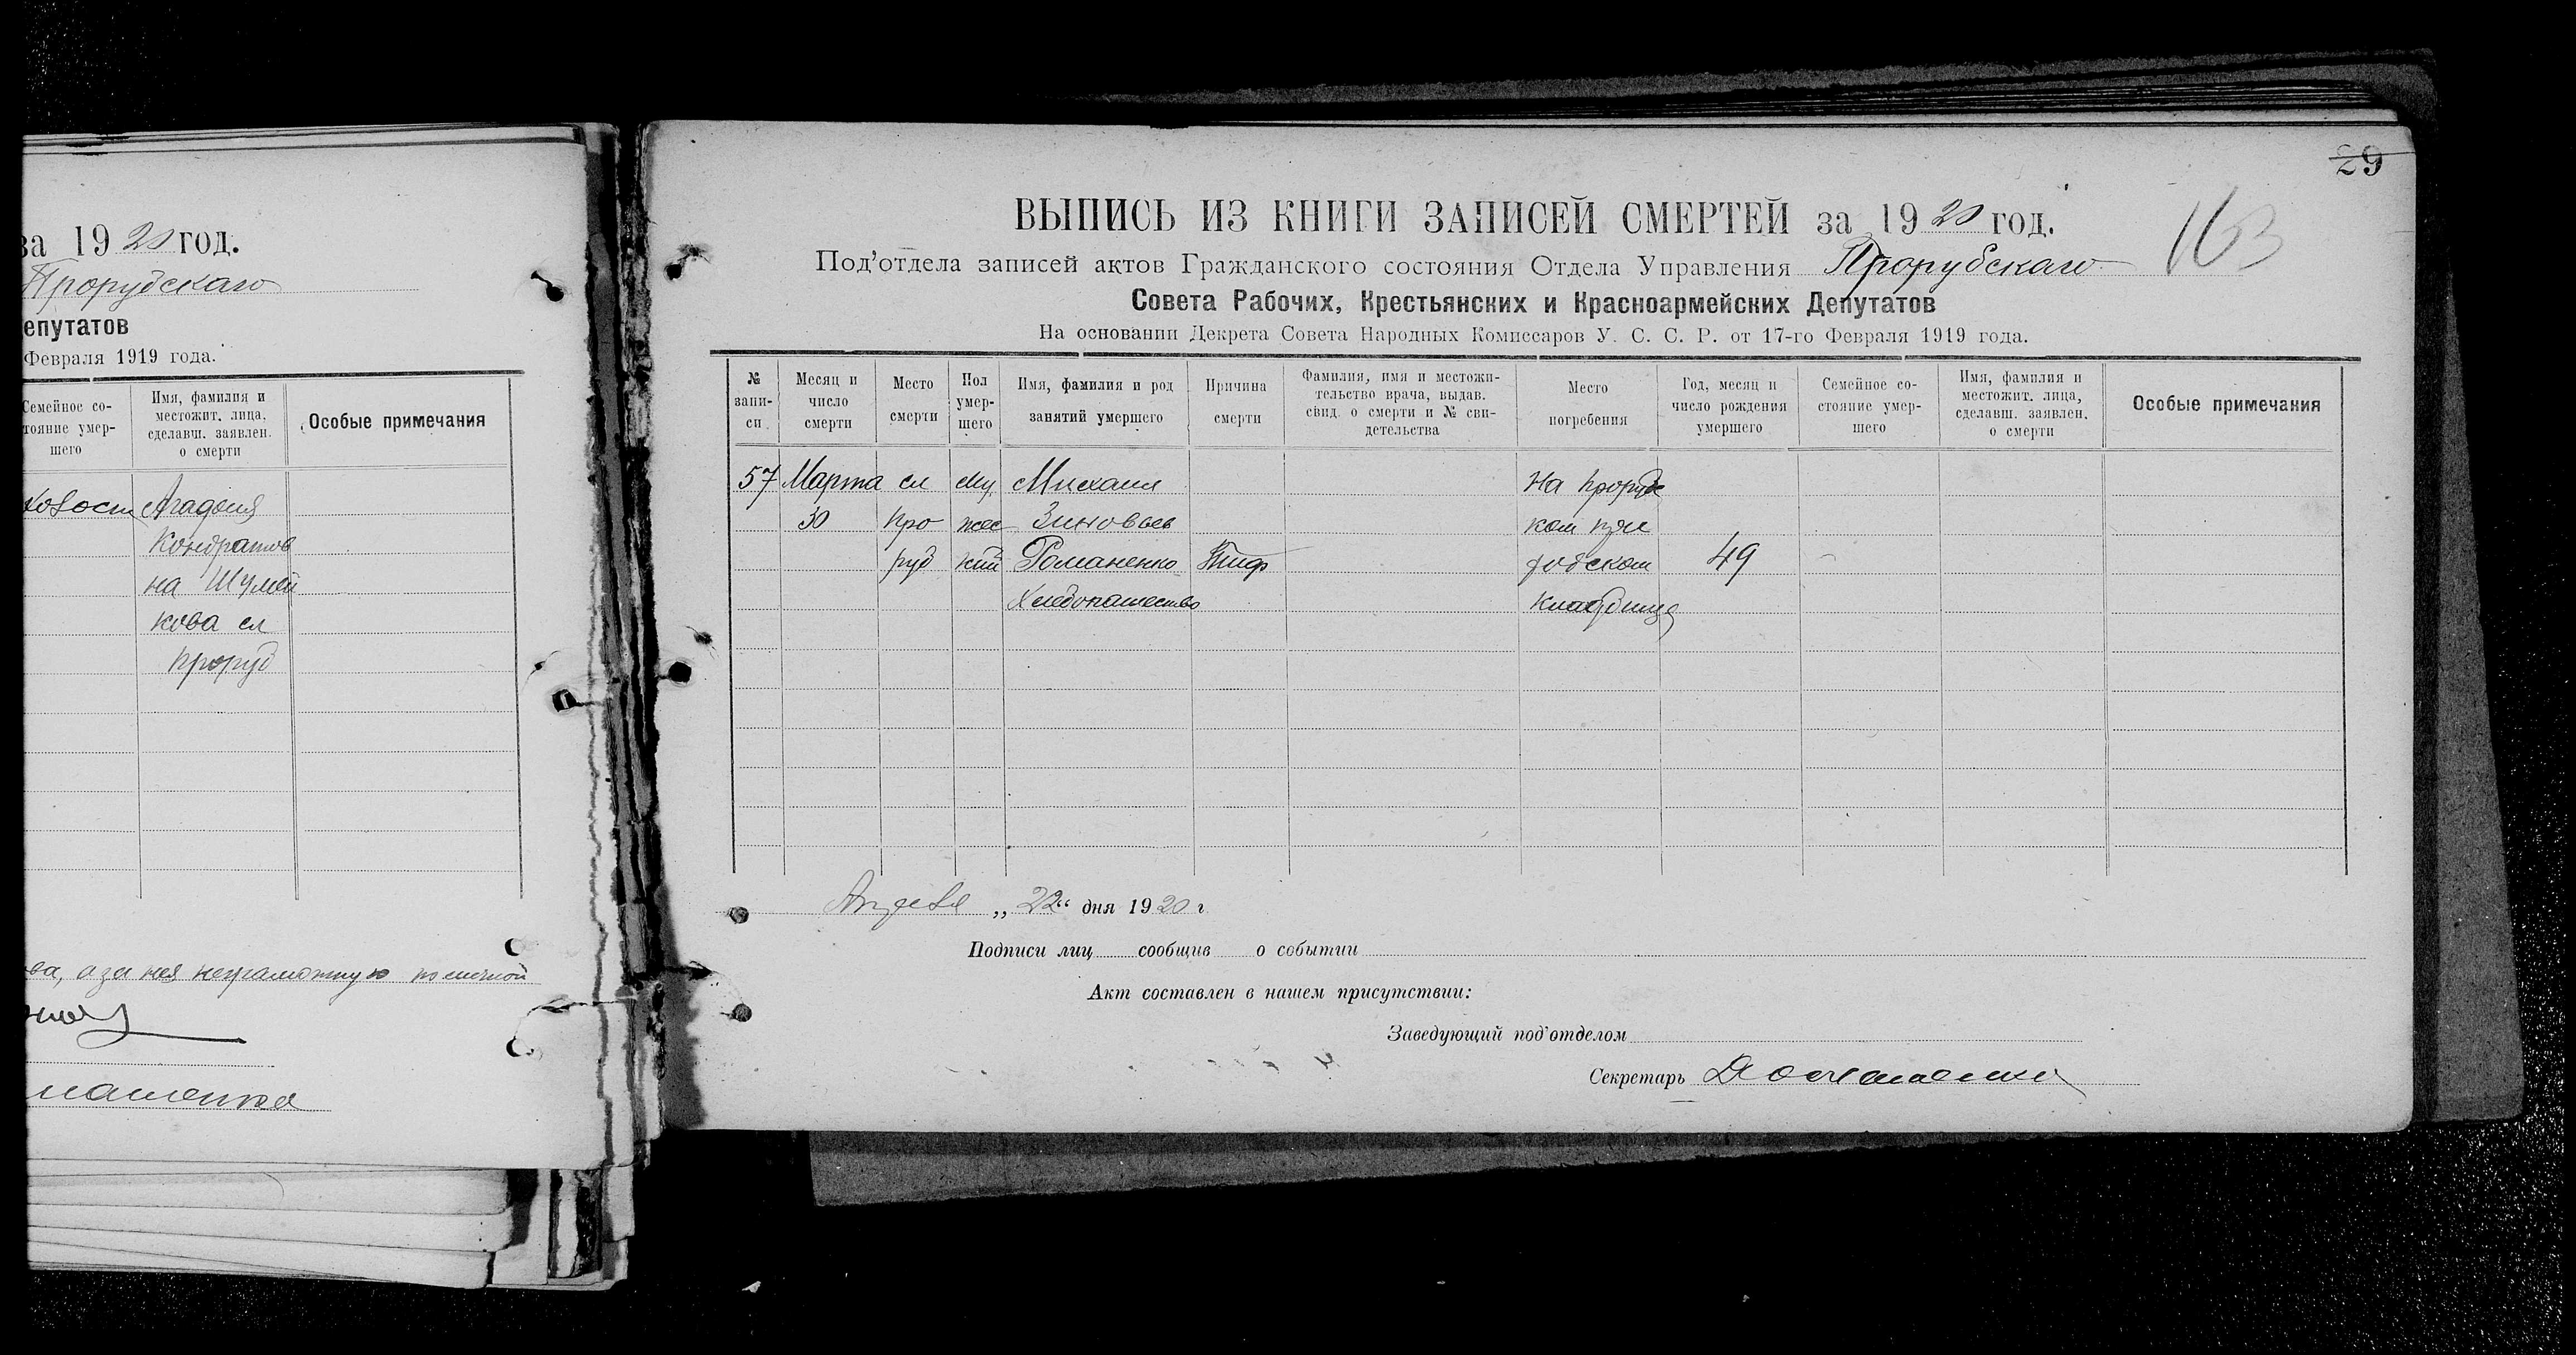 за 1920 год.
Прорубскаго
епутатов
Февраля 1919 года.
Семейное со-
тояние умер-
шего
Имя, фамилия и
местожит. лица,
сделавш. заявлен.
о смерти
Особые примечания
Агафия
Кондратов
на Шумей
кова сл
Проруб
ва, а за нея неграмотную по личной
29
163
ВЫПИСЬ ИЗ КНИГИ ЗАПИСЕЙ СМЕРТЕЙ за 1920 год.
Под'отдела записей актов Гражданского состояния Отдела Управления Прорубскаго
Совета Рабочих, Крестьянских и Красноармейских Депутатов
На основании Декрета Совета Народных Комиссаров У. С. С. Р. от 17-го Февраля 1919 года.
№
запи-
си.
Месяц и
число
смерти
Место
смерти
Пол
умер-
шего
Имя, фамилия и род
занятий умершего
Причина
смерти
Фамилия, имя и местожи-
тельство врача, выдав.
свид. о смерти и № сви-
детельства
Место
погребения
Год, месяц и
число рождения
умершего
Семейное со-
стояние умер-
шего
Имя, фамилия и
местожит. лица,
сделавш. заявлен.
о смерти
Особые примечания
57 Марта сл Му Михаил На Прорубс
30 Про жес Зиновьев ком
руб кий Романенко Тиф 49
Хлебопашество
Апреля „22“ дня 1920 г.
Подписи лиц сообщив о событии
Акт составлен в нашем присутствии:
Заведующий под'отделом
Секретарь